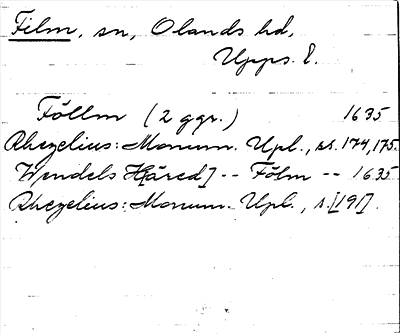 Film, sn, Olands hd,
Upps. l.
Föllm (2 ggr.) 1635
Rhezelius: Monum. Upl., ss. 174, 175.
Wendels H[äred] -- Fölm -- 1635
Rhezelius: Monum. Upl., s. [191].